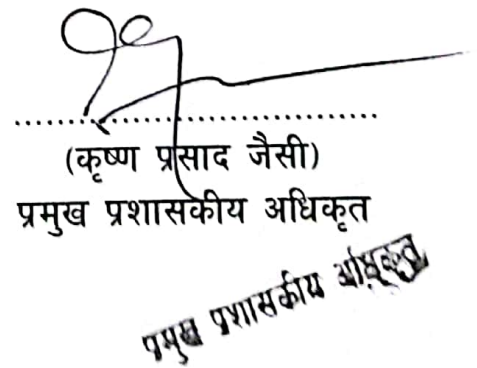 (कृष्ण प्रसाद जैसी)
प्रमुख प्रशासकीय अधिकृत
प्रमुख प्रशासकीय अधिकृत